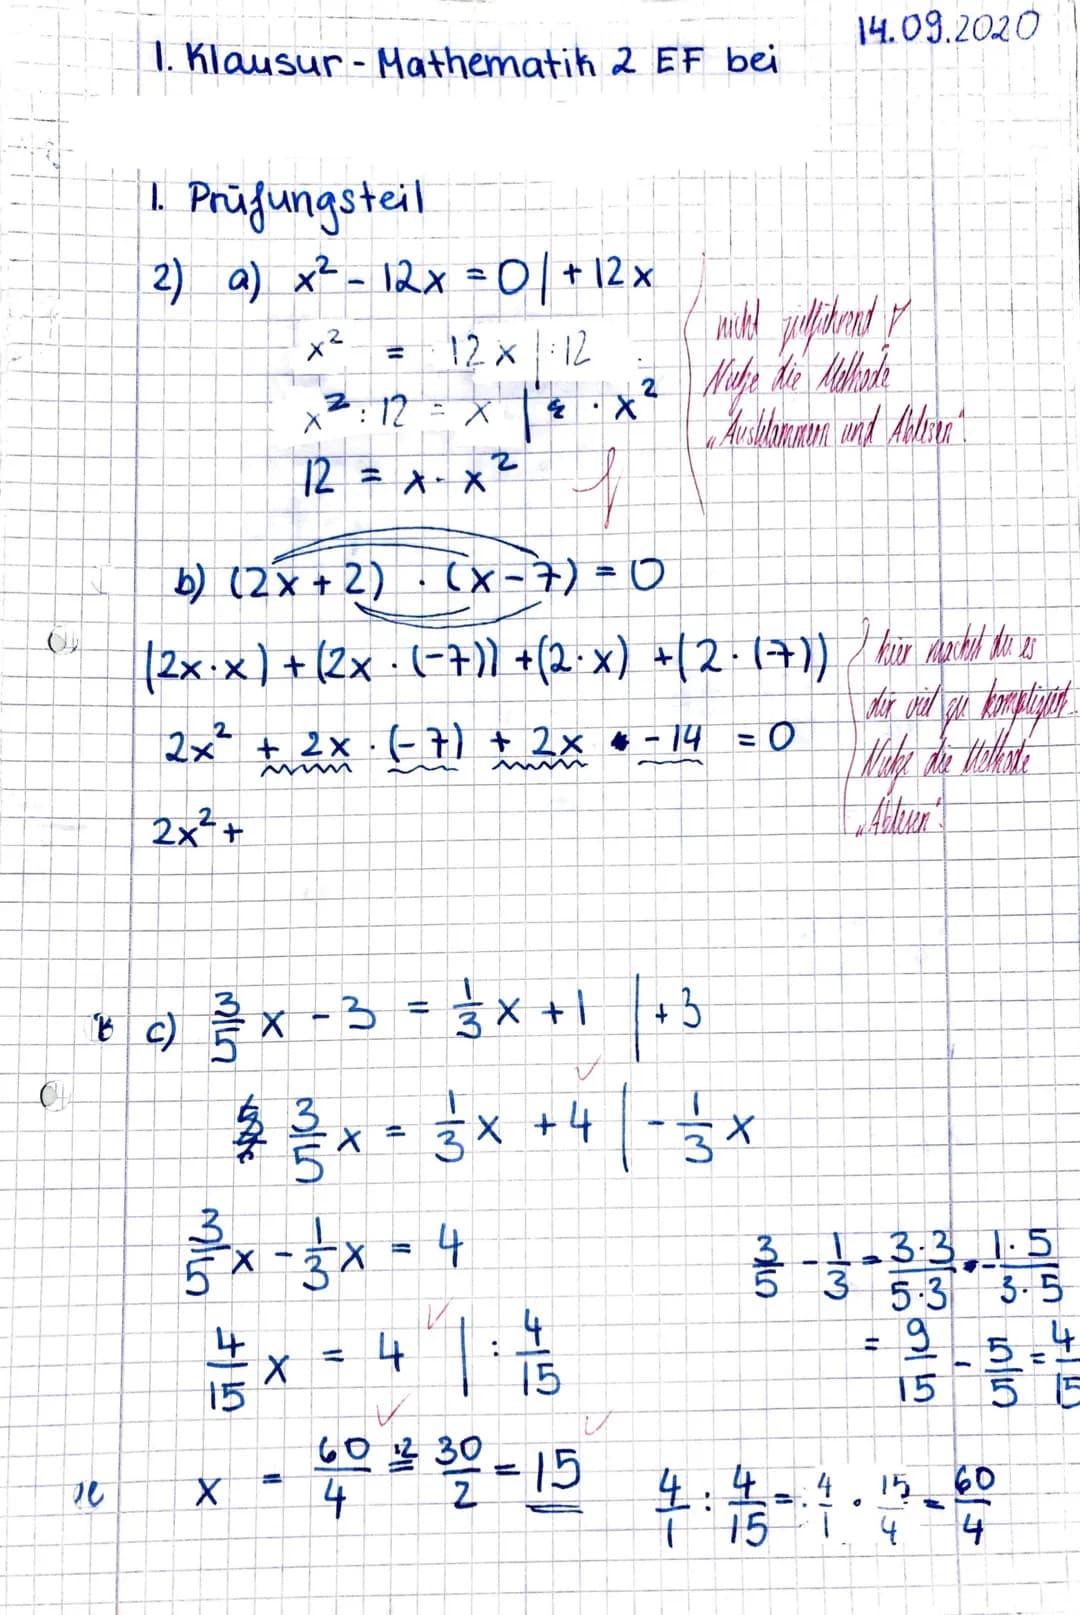 14.09.2020
1. Klausur - Mathematik 2 EF bei
1. Prüfungsteil
2) a) x² - 12x = 0 | + 12x
x² = 12x | : 12
x² : 12 = x | · x²
12 = x · x²
nicht zielführend
Nutze die Methode
„Ausklammern und Ablesen"!
b) (2x + 2) · (x - 7) = 0
(2x·x) + (2x · (-7)) + (2·x) + (2·(-7))
2x² + 2x · (-7) + 2x - 14 = 0
2x² +
hier machst du es
dir viel zu kompliziert.
Nutze die Methode
„Ablesen"!
c) 3/5 x - 3 = 1/3 x + 1 | + 3
3/5 x = 1/3 x + 4 | - 1/3 x
3/5 x - 1/3 x = 4
4/15 x = 4 | : 4/15
x = 60/4 :2= 30/2 = 15
3/5 - 1/3 = 3·3/5·3 - 1·5/3·5
= 9/15 - 5/5 = 4/15
4/1 : 4/15 = 4/1 · 15/4 = 60/4